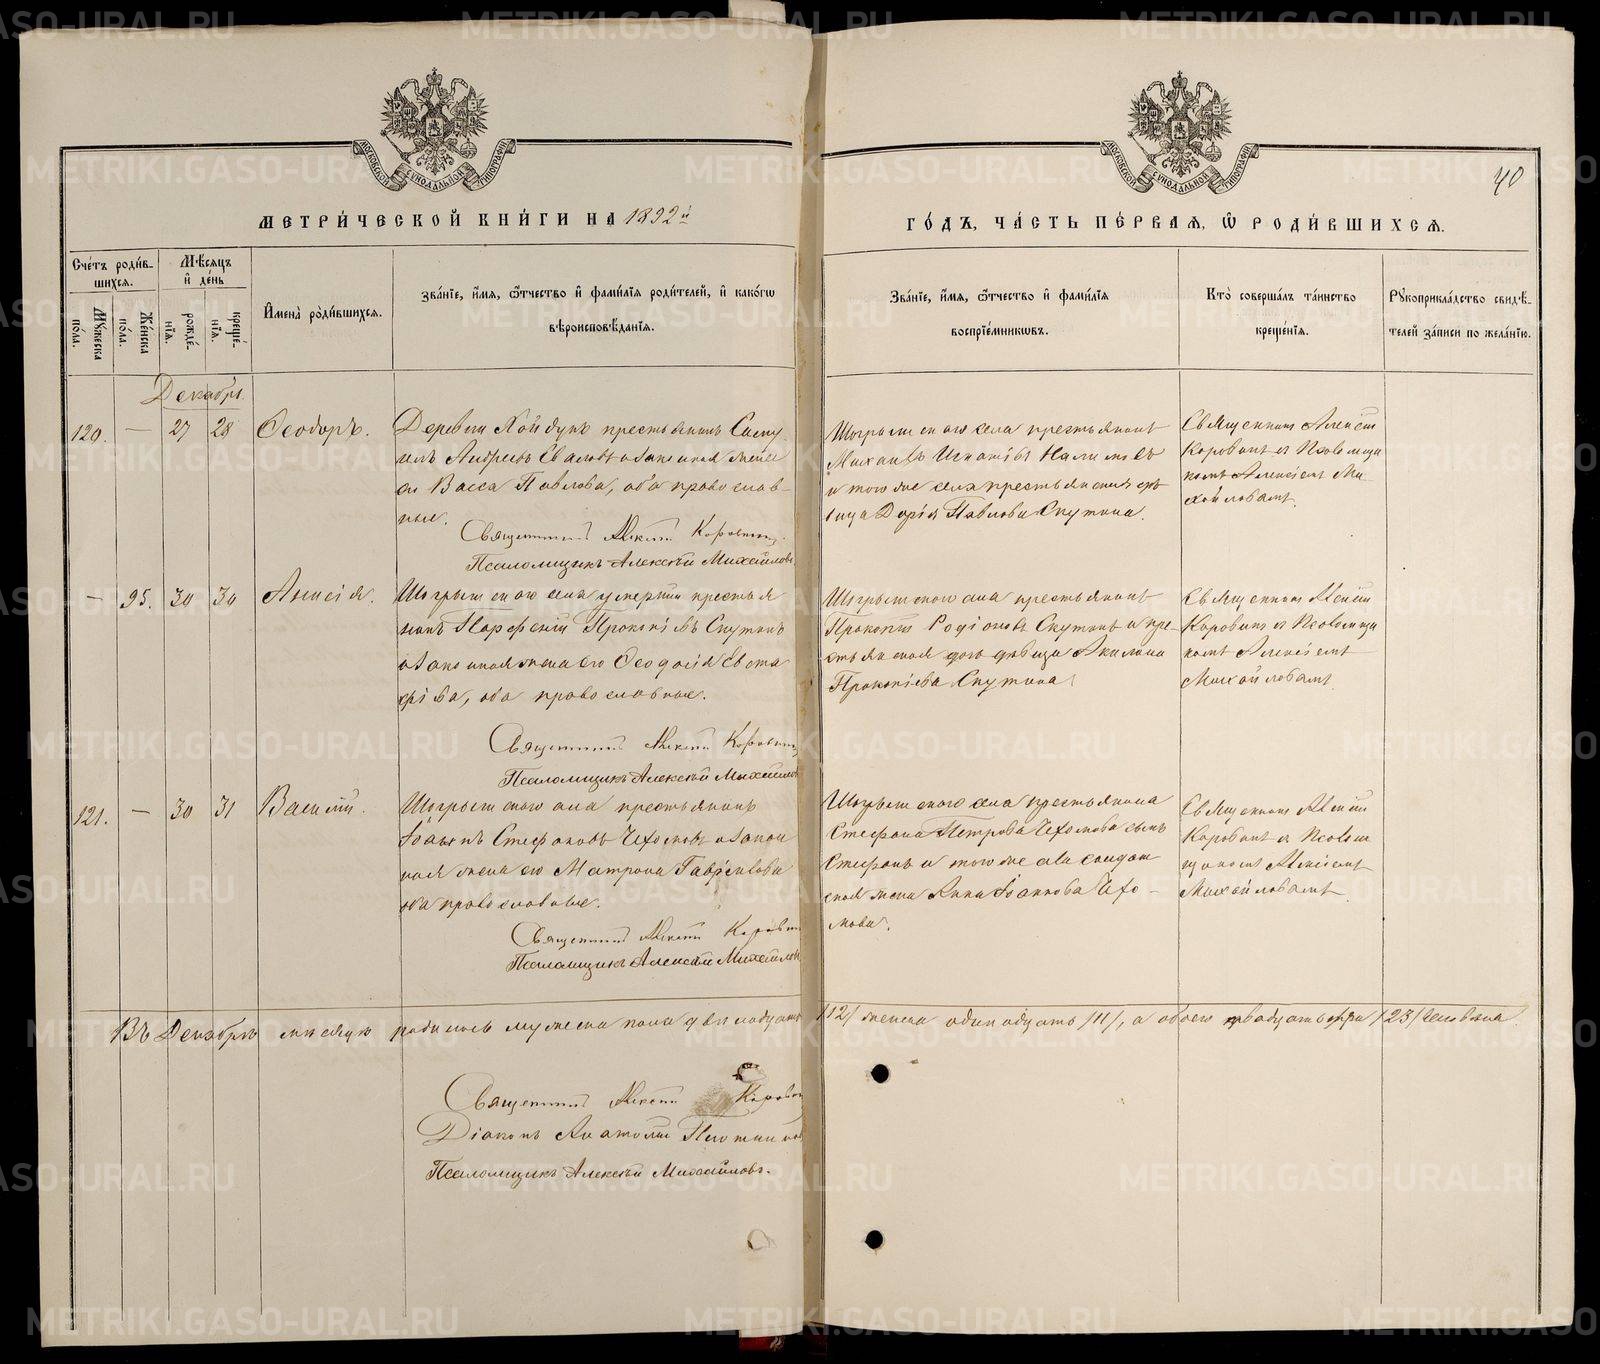 МЕТРИ́ЧЕСКОЙ КНИ́ГИ НА 1892й
ГО́ДЪ, ЧА́СТЬ ПЕ́РВАЯ, Ѿ РОДИ́ВШИХСЯ.
40
МОСКОВСКОЙ СУНОДАЛЬНОЙ ТИПОГРАФІИ
МОСКОВСКОЙ СУНОДАЛЬНОЙ ТИПОГРАФІИ
Сче́тъ роди́в-
шихся.
Мѣ́сяцъ
и҆ де́нь
Му́жеска
по́ла.
Же́нска
по́ла.
рожде́-
нїя.
креще́-
нїя.
И҆мена̀ роди́вшихся.
Зва́нїе, и҆́мя, ѻ҆́тчество и҆ фами́лїя роди́телей, и҆ како́гѡ
вѣроисповѣ́данїя.
Зва́нїе, и҆́мя, ѻ҆́тчество и҆ фами́лїя
воспрїе́мниковъ.
Кто̀ соверша́лъ та́инство
креще́нїя.
Рꙋкоприкла́дство свидѣ́-
телей за́писи по жела́нїю.
Декабрь
120. — 27 28 Ѳеодоръ.
Деревни Койдукъ крестьянинъ Саму-
илъ Андреевъ и законная жена
его Васса Павлова, оба православ-
ные.
Священникъ Алексій Коровинъ
Псаломщикъ Алексѣй Михайловъ
Шогрышскаго села крестьянинъ
Михаилъ Игнатіевъ Налимовъ
и того же села крестьянская дѣ-
вица Дарія Павлова Скутина.
Священникъ Алексій
Коровинъ съ Псаломщи
комъ Алексіемъ Ми-
хайловымъ.
— 95. 30 30 Анисія.
Шогрышскаго села умершій крестья
нинъ Парфеній Прокопіевъ Скутинъ
и законная жена его Ѳеодосія Евста
фіева, оба православные.
Священникъ Алексій Коровинъ
Псаломщикъ Алексѣй Михайловъ
Шогрышскаго села крестьянинъ
Прокопій Родіоновъ Скутинъ и кре-
стьянская дочь дѣвица Акилина
Прокопіева Скутина.
Священникъ Алексій
Коровинъ съ Псаломщи
комъ Алексіемъ
Михайловымъ
121. — 30 31 Василій.
Шогрышскаго села крестьянинъ
Іоаннъ Стефановъ Чехомовъ и закон
ная жена его Матрона Гавріилова
оба православные.
Священникъ Алексій Коровинъ
Псаломщикъ Алексѣй Михайловъ
Шогрышскаго села крестьянина
Стефана Петрова Чехомова сынъ
Стефанъ и того же села солдат
ская жена Анна Іоаннова Чехо-
мова.
Священникъ Алексій
Коровинъ съ Псалом
щикомъ Алексіемъ
Михайловымъ.
Въ Декабрѣ мѣсяцѣ родилось мужеска пола двѣнадцать /12/ женска одинадцать /11/, а обоего двадцать три /23/ человѣка.
Священникъ Алексій Коровинъ
Діаконъ Анатолій Плотниковъ
Псаломщикъ Алексѣй Михайловъ.
METRIKI.GASO-URAL.RU